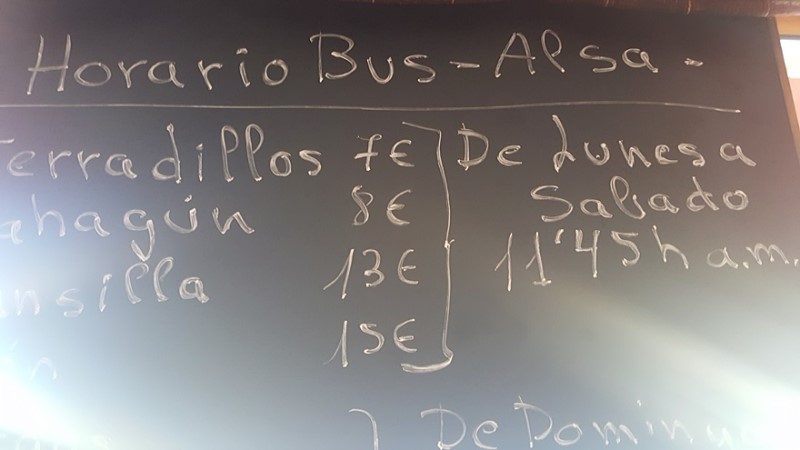 Horario Bus - Alsa -
erradillos 7€ De Lunes a
ahagún 8€ Sabado
nsilla 13€ 11'45 h a.m.
15€
De Doming